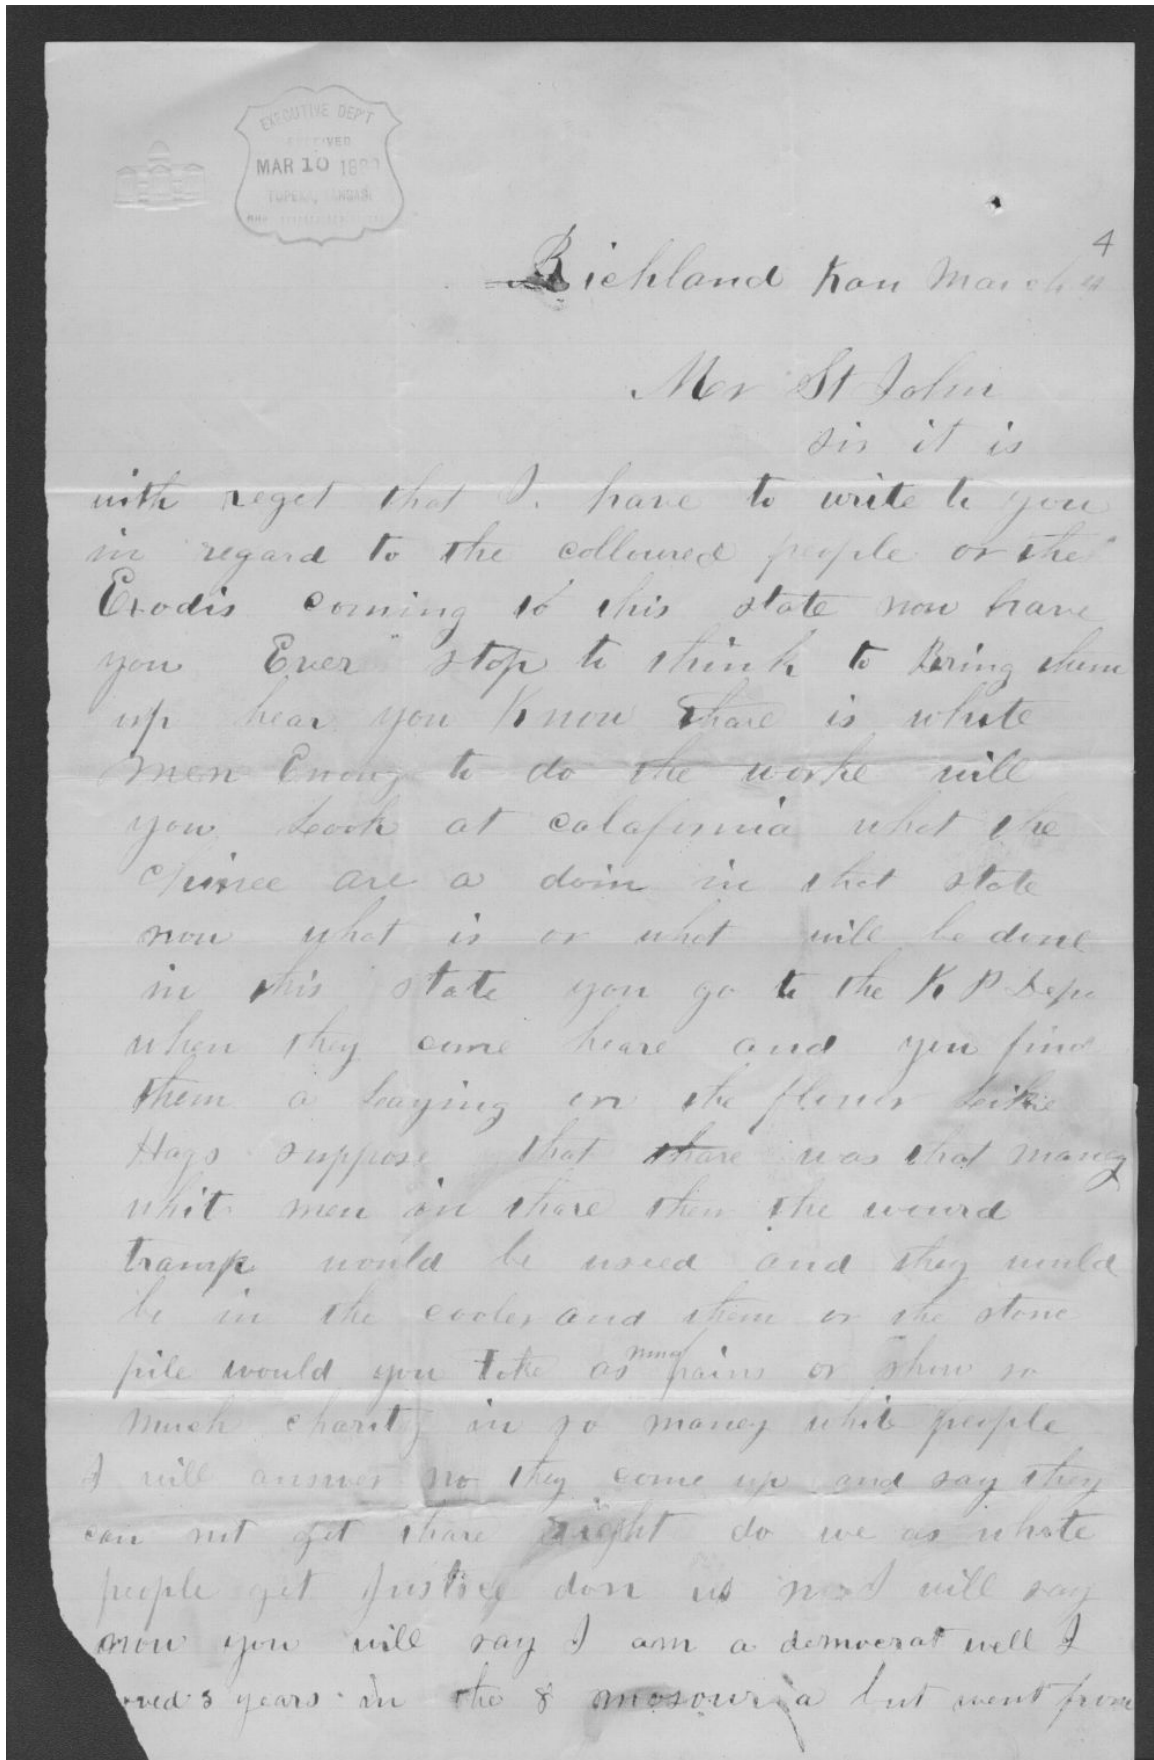 EXECUTIVE DEP'T
RECEIVED
MAR 10 18
TOPEKA, KANSAS.
4
Richland Kan March
Mr St John
sir it is
with reget that I. have to write to you
in regard to the colloured people or the
Exodis coming to this state now have
you Ever stop to think to Bring them
up hear you Know thare is white
men Enoug to do the worke will
you Look at calafornia what the
chinee are a doin in that state
now what is or what will be done
in this state you go to the K P Depo
when they come heare and you find
them a Laying on the flour Leike
Hogs suppose that thare was that maney
whit men in thare then the wourd
tramp would be useed and they would
be in the cooler and them or the stone
pile would you take as mung pains or show so
much charity in so maney white people
I will answer no they come up and say they
can not get thare right do we as white
people get Justice don us no I will say
now you will say I am a democrat well I
rved 3 years in the 8 mosouria but went from